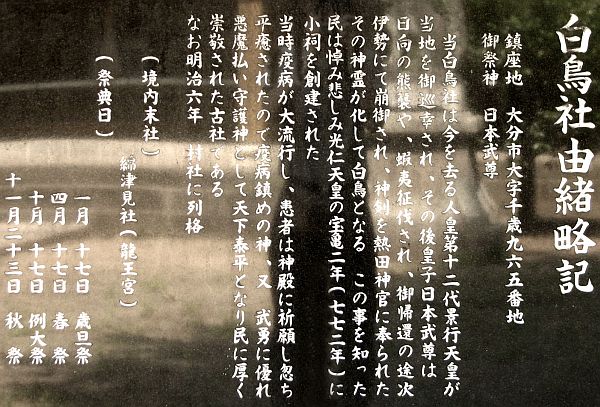 白鳥社由緒略記
鎮座地 大分市大字千歳九六五番地
御祭神 日本武尊
当白鳥社は今を去る人皇第十二代景行天皇が
当地を御巡幸され、その後皇子日本武尊は
日向の熊襲や、蝦夷征伐され、御帰還の途次
伊勢にて崩御され、神剣を熱田神宮に奉られた
その神霊が化して白鳥となる この事を知った
民は悼み悲しみ光仁天皇の宝亀二年(七七二年)に
小祠を創建された
当時疫病が大流行し、患者は神殿に祈願し忽ち
平癒されたので疫病鎮めの神、又 武勇に優れ
悪魔払い守護神として天下泰平となり民に厚く
崇敬された古社である
なお明治六年 村社に列格
(境内末社)
綿津見社(龍王宮)
(祭典日)
一月 十七日 歳旦祭
四月 十七日 春祭
十月 十七日 例大祭
十一月二十三日 秋祭